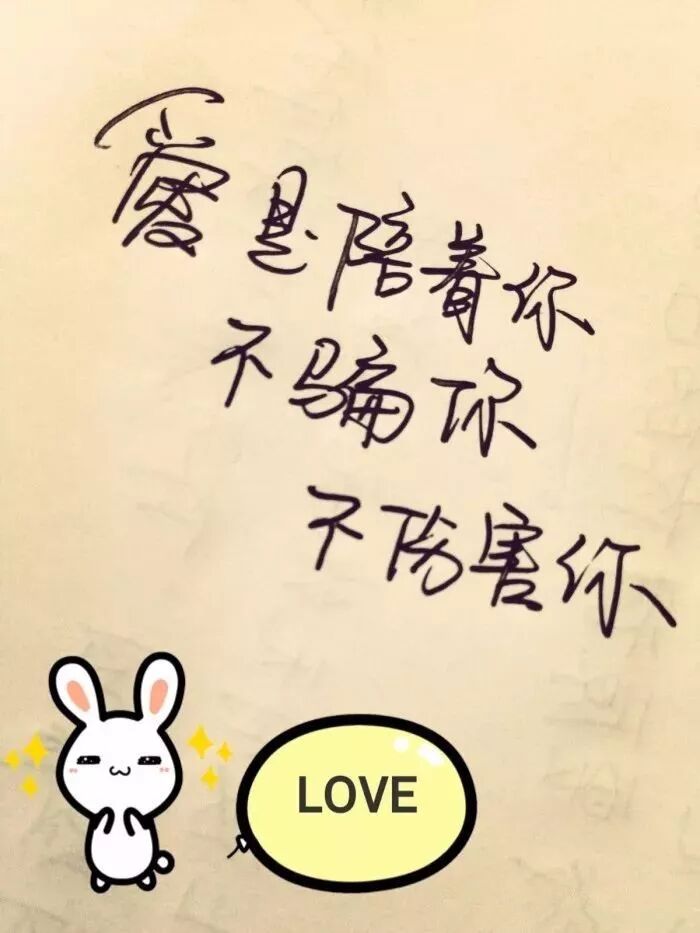 爱是陪着你
不骗你
不伤害你
LOVE